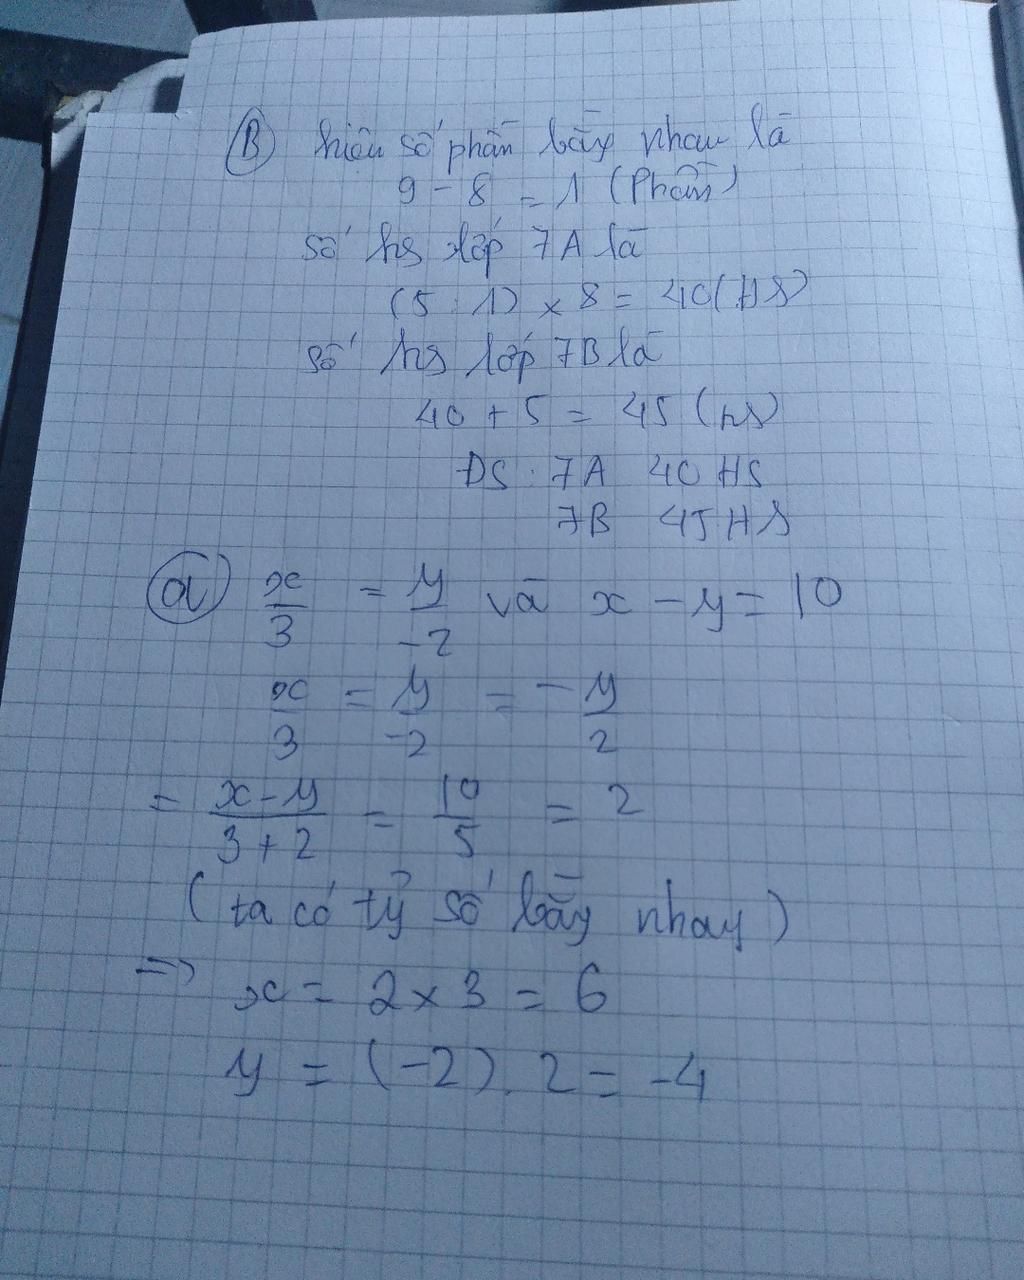 B hiệu số phần bằng nhau là
9 - 8 = 1 (Phần)
số hs lớp 7A là
(5 : 1) x 8 = 40 (HS)
số hs lớp 7B là
40 + 5 = 45 (hs)
ĐS : 7A 40 HS
7B 45 HS
a x/3 = y/-2 và x - y = 10
x/3 = y/-2 = - y/2
= x-y/3+2 = 10/5 = 2
(ta có tỷ số bằng nhay)
=> x = 2 x 3 = 6
y = (-2) . 2 = -4